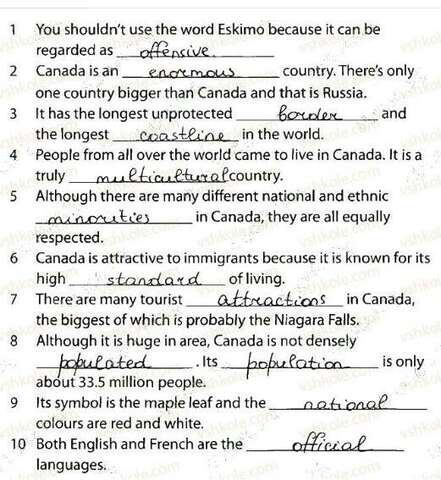 1 You shouldn't use the word Eskimo because it can be
regarded as offensive.
2 Canada is an enormous country. There's only
one country bigger than Canada and that is Russia.
3 It has the longest unprotected border and
the longest coastline in the world.
4 People from all over the world came to live in Canada. It is a
truly multicultural country.
5 Although there are many different national and ethnic
minorities in Canada, they are all equally
respected.
6 Canada is attractive to immigrants because it is known for its
high standard of living.
7 There are many tourist attractions in Canada,
the biggest of which is probably the Niagara Falls.
8 Although it is huge in area, Canada is not densely
populated. Its population is only
about 33.5 million people.
9 Its symbol is the maple leaf and the national
colours are red and white.
10 Both English and French are the official
languages.